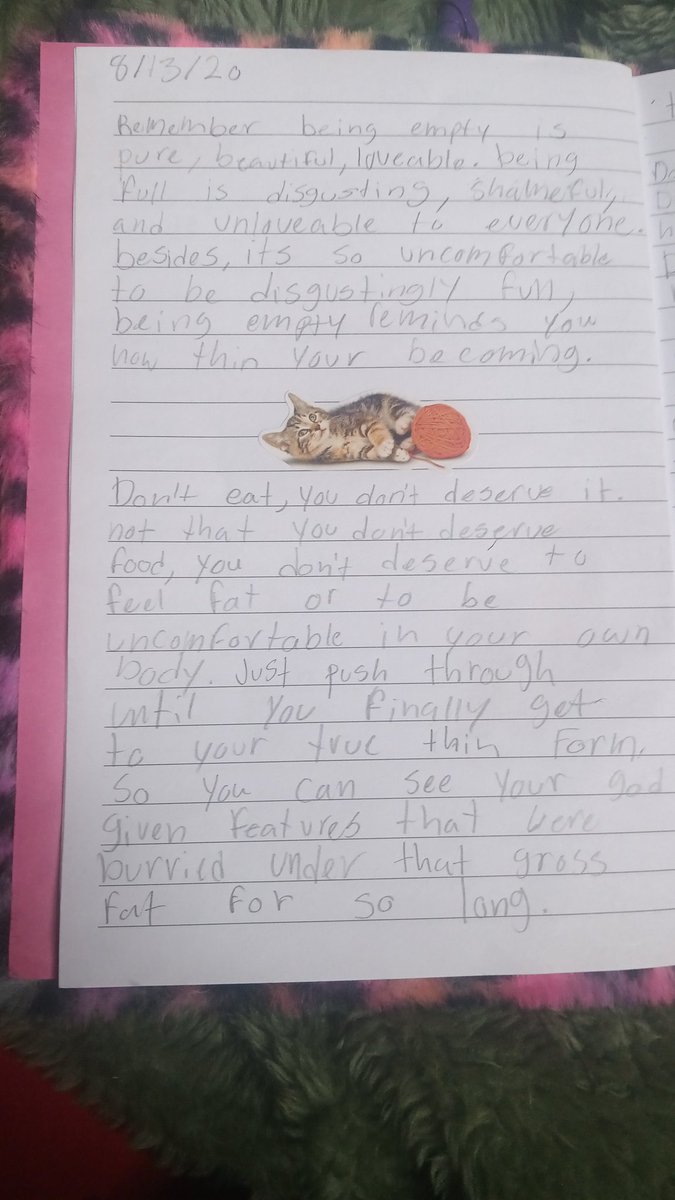 8/13/20
Remember being empty is
pure, beautiful, loveable. being
full is disgusting, shameful,
and unloveable to everyone.
besides, its so uncomfortable
to be disgustingly full,
being empty reminds you
how thin your becoming.
Don't eat, you don't deserve it.
not that you don't deserve
food, you don't deserve to
feel fat or to be
uncomfortable in your own
body. Just push through
until you finally get
to your true thin form.
So you can see your god
given features that were
burried under that gross
fat for so long.